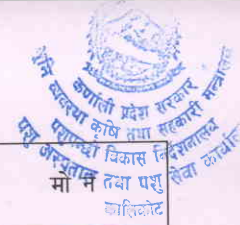 कर्णाली प्रदेश सरकार
भूमि व्यवस्था कृषि तथा सहकारी मन्त्रालय
पशुपन्छी विकास निर्देशनालय
पशु अस्पताल तथा पशु सेवा कार्यालय
कालिकोट
मो नं